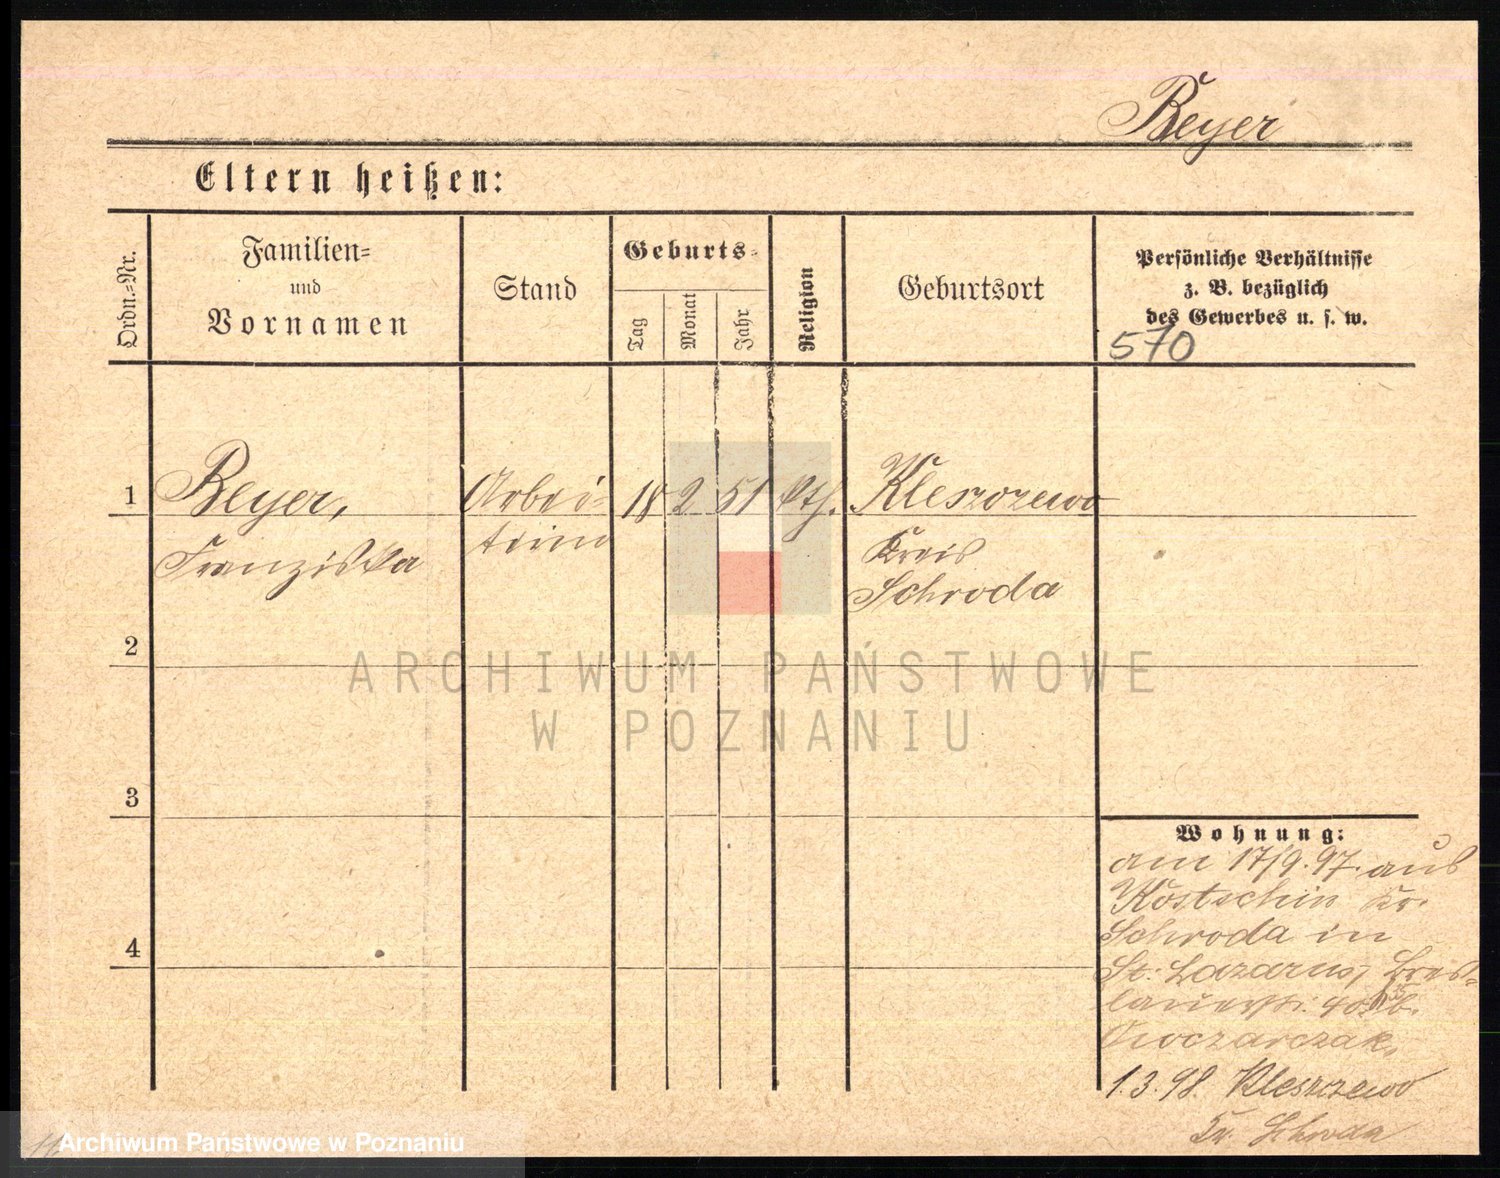 Beyer
Eltern heißen:
Ordn.-Nr.
Familien-
und
Vornamen
Stand
Geburts-
Tag
Monat
Jahr
Religion
Geburtsort
Persönliche Verhältnisse
z. B. bezüglich
des Gewerbes u. s. w.
570
1
Beyer,
Franziska
Arbei-
terin
18
2
51
kth.
Kleszczewo
Kreis
Schroda
2
3
4
Wohnung:
am 17/9. 97. aus
Kostschin Kr.
Schroda in
St. Lazarus, Bres-
lauerstr. 40 b.
Owczarczak,
1. 3. 98. Kleszczewo
Kr. Schroda
ARCHIWUM PAŃSTWOWE
W POZNANIU
Archiwum Państwowe w Poznaniu